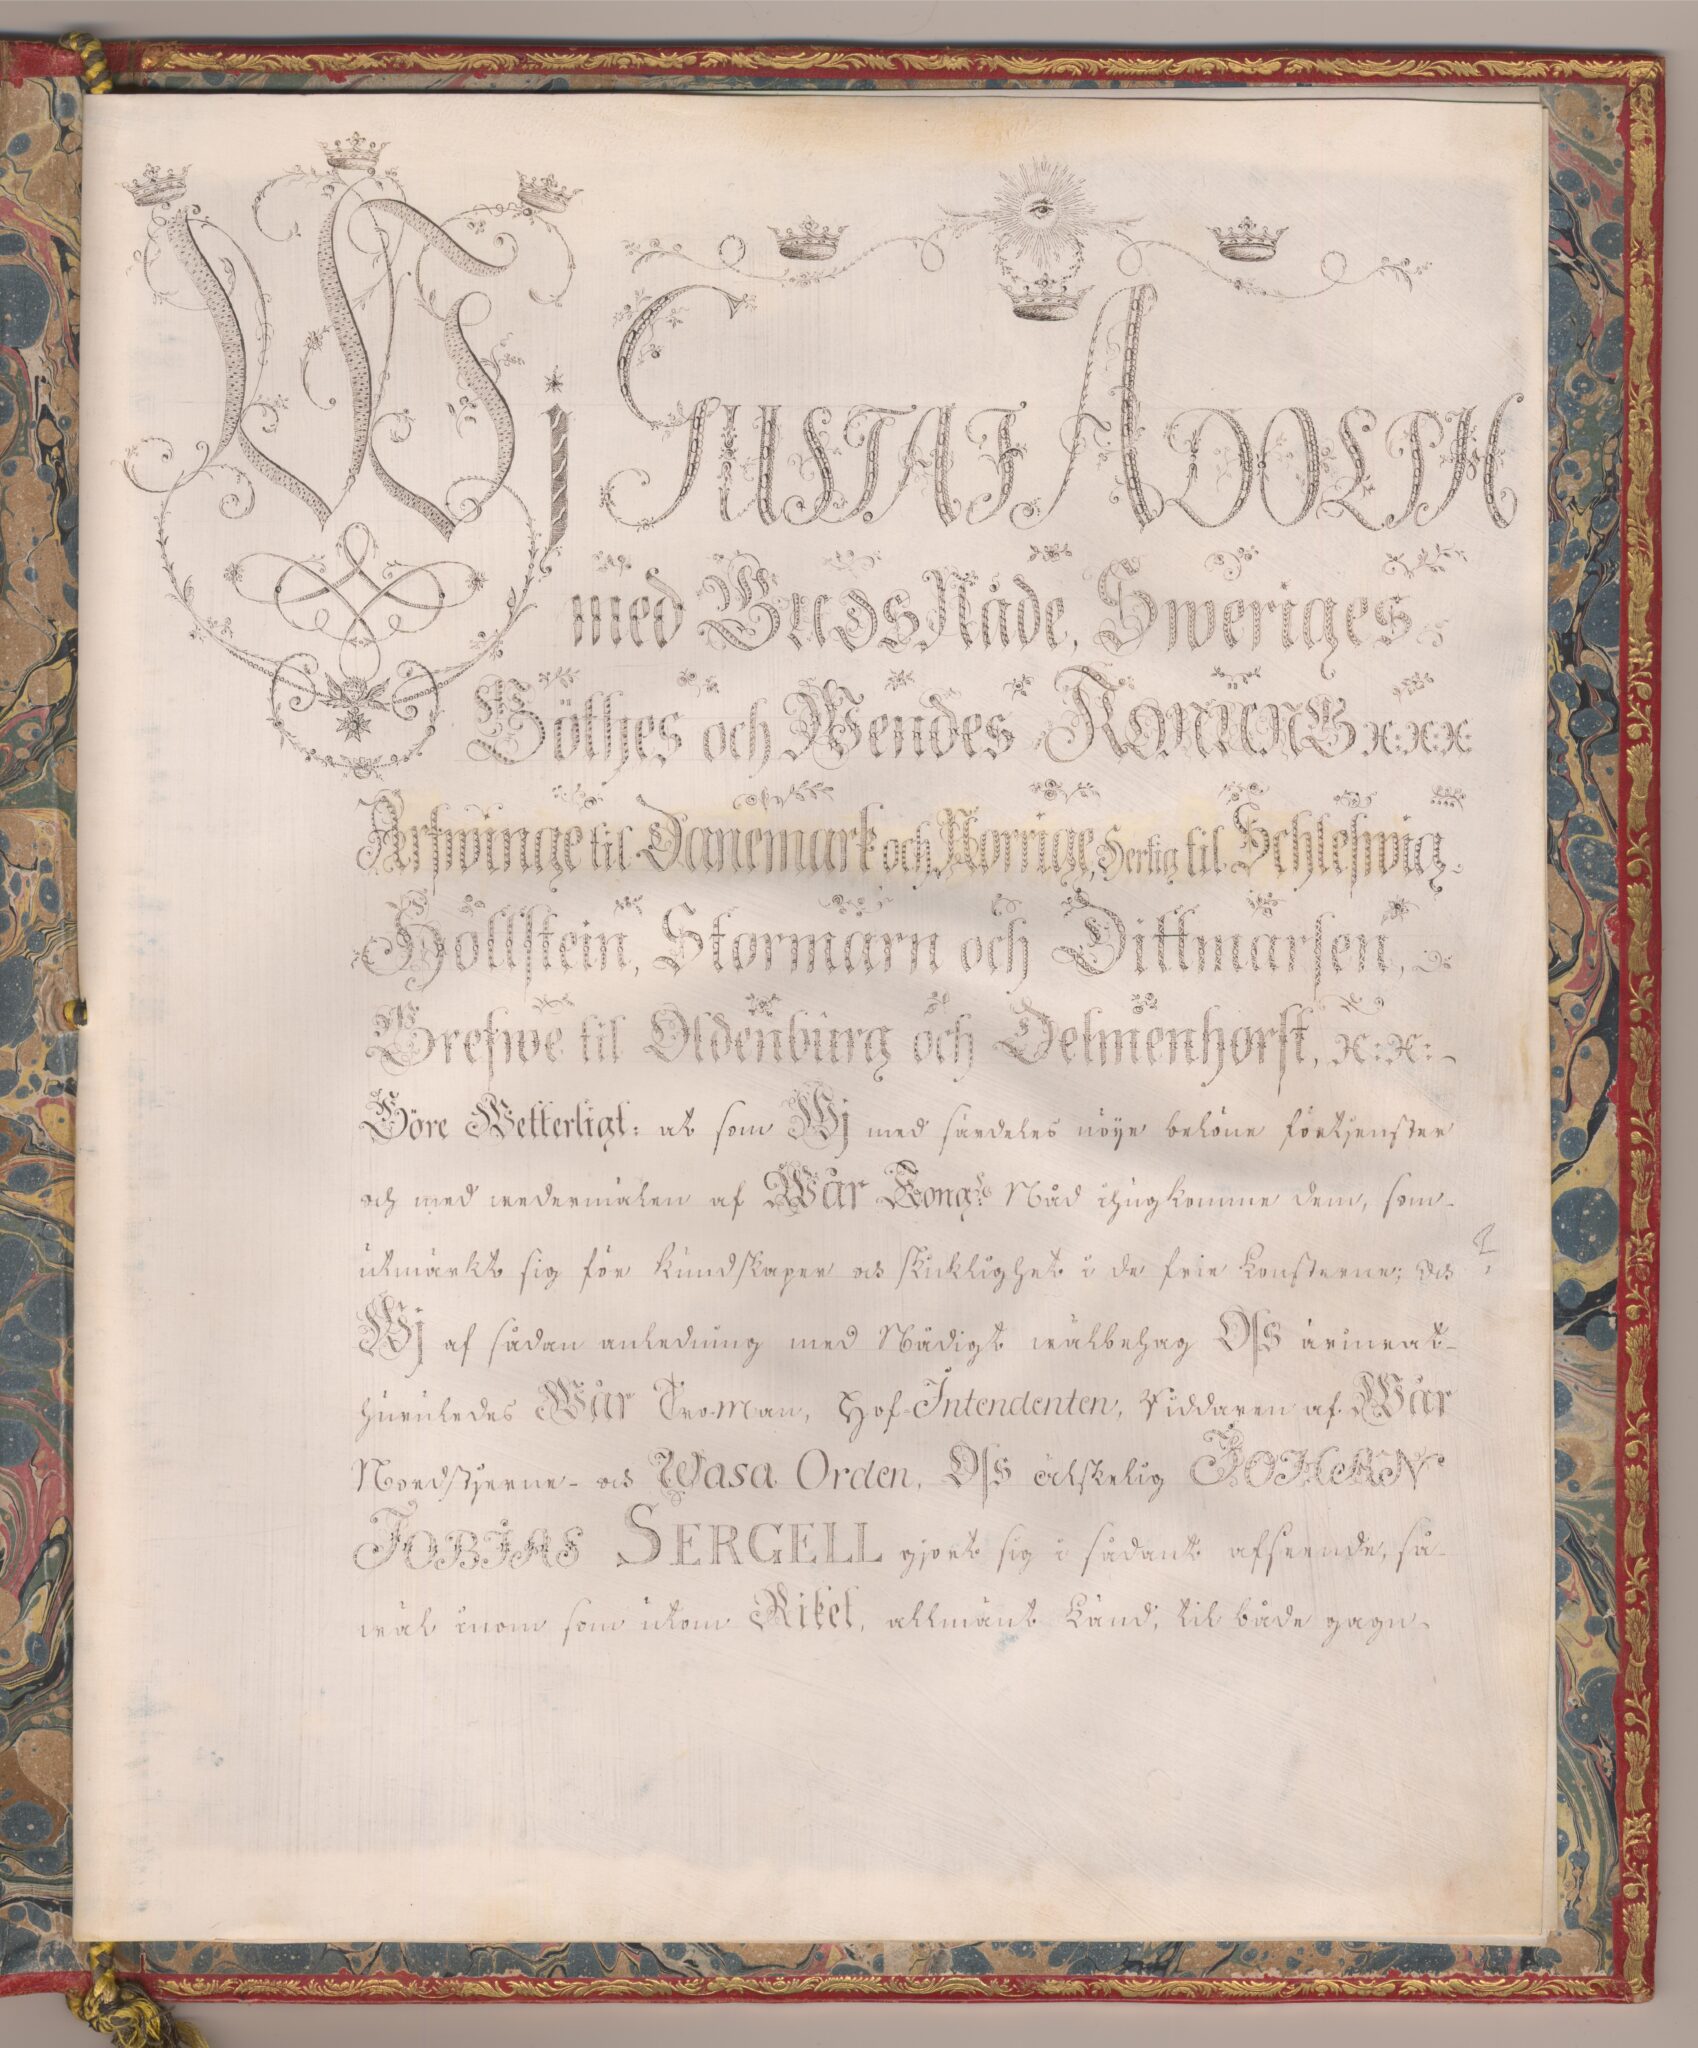 Wj GUSTAF ADOLPH
med GUDS Nåde, Sweriges
Göthes och Wendes KONUNG xc:xc:xc:
Arfwinge til Danemark och Norrige, Hertig til Schleswig,
Hollstein, Stormarn och Dittmarsen,
Grefwe til Oldenburg och Delmenhorst, xc: xc:
Göre Wetterligt: at som Wj med särdeles nöye belöne förtjenster
och med wedermälen af Wår Kongl: Nåd ihugkomme dem, som
utmärkt sig för kundskaper och skicklighet i de frie Konsterne; och
Wj af sådan anledning med Nådigt wälbehag Oss ärinrat
huruledes Wår Tro-Man, Hof-Intendenten, Riddaren af Wår
Nordstjerne- och Wasa Orden, Oss älskelig JOHAN
TOBIAS SERGELL gjort sig i sådant afseende, så-
wäl inom som utom Riket, allmänt känd, til både gagn